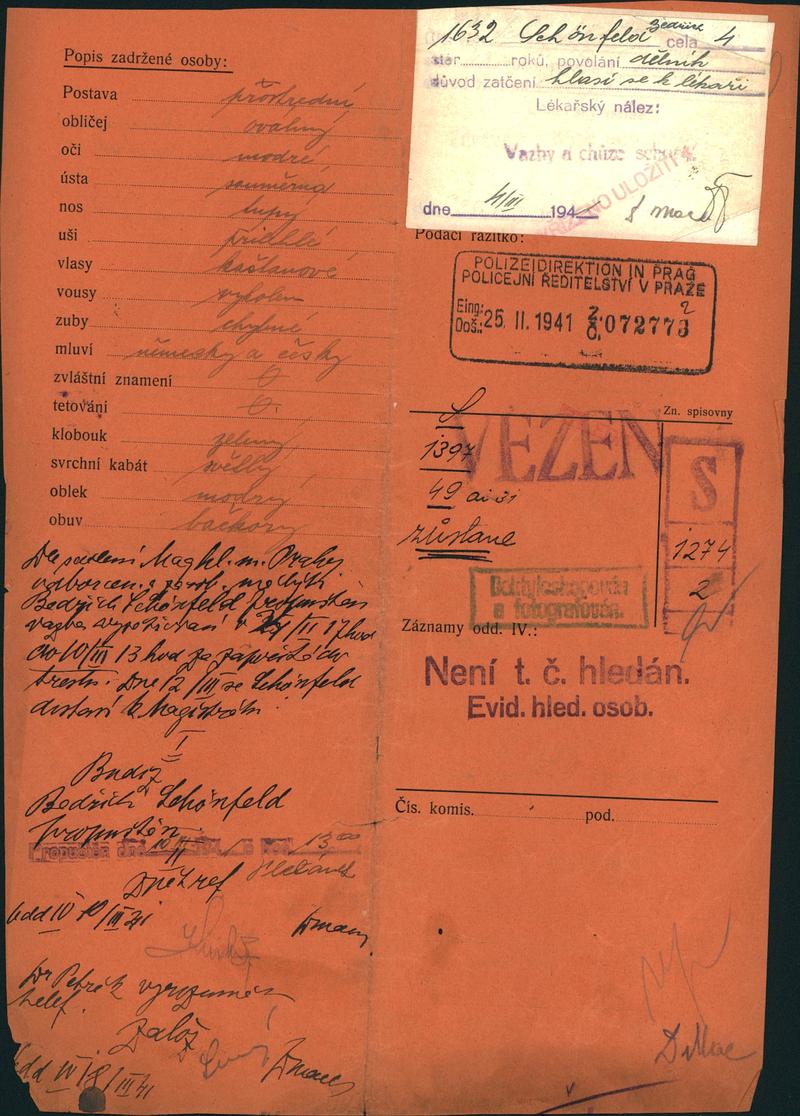 Popis zadržené osoby:
Postava prostřední
obličej oválný
oči modré
ústa souměrná
nos tupý
uši přilehlé
vlasy kaštanové
vousy vyholen
zuby chybné
mluví německy a česky
zvláštní znamení 0
tetování 0.
klobouk zelený
svrchní kabát světlý
oblek modrý
obuv bačkory
Mag hl. m. Prahy
Bedřich Schönfeld propuštěn
17 hod
do 10/III 13 hod za
trestu. Dne 12/III se Schönfeld
dostaví k Magistrátu.
I
Budiž
Bedřich Schönfeld
propuštěn.
Propuštěn dne 13 00
odd IV 10/III 41
Dr Petrák vyrozuměn
telef.
Založ
odd IV 8/III 41
1632 Schönfeld Bedřich cela 4
stár roků, povolání dělník
důvod zatčení hlásí se k lékaři
Lékařský nález:
Vazby a chůze schop
ULOŽITI
dne 4/III 194
Podací razítko:
POLIZEIDIREKTION IN PRAG
POLICEJNÍ ŘEDITELSTVÍ V PRAZE
2
Eing.: Doš.: 25 II. 1941 Z. Č. 072773
Zn. spisovny
S
1397
49
zůstane
VĚZEŇ
S
1274
2
Daktyloskopován
a fotografován.
Záznamy odd. IV.:
Není t. č. hledán.
Evid. hled. osob.
Čís. komis. pod.